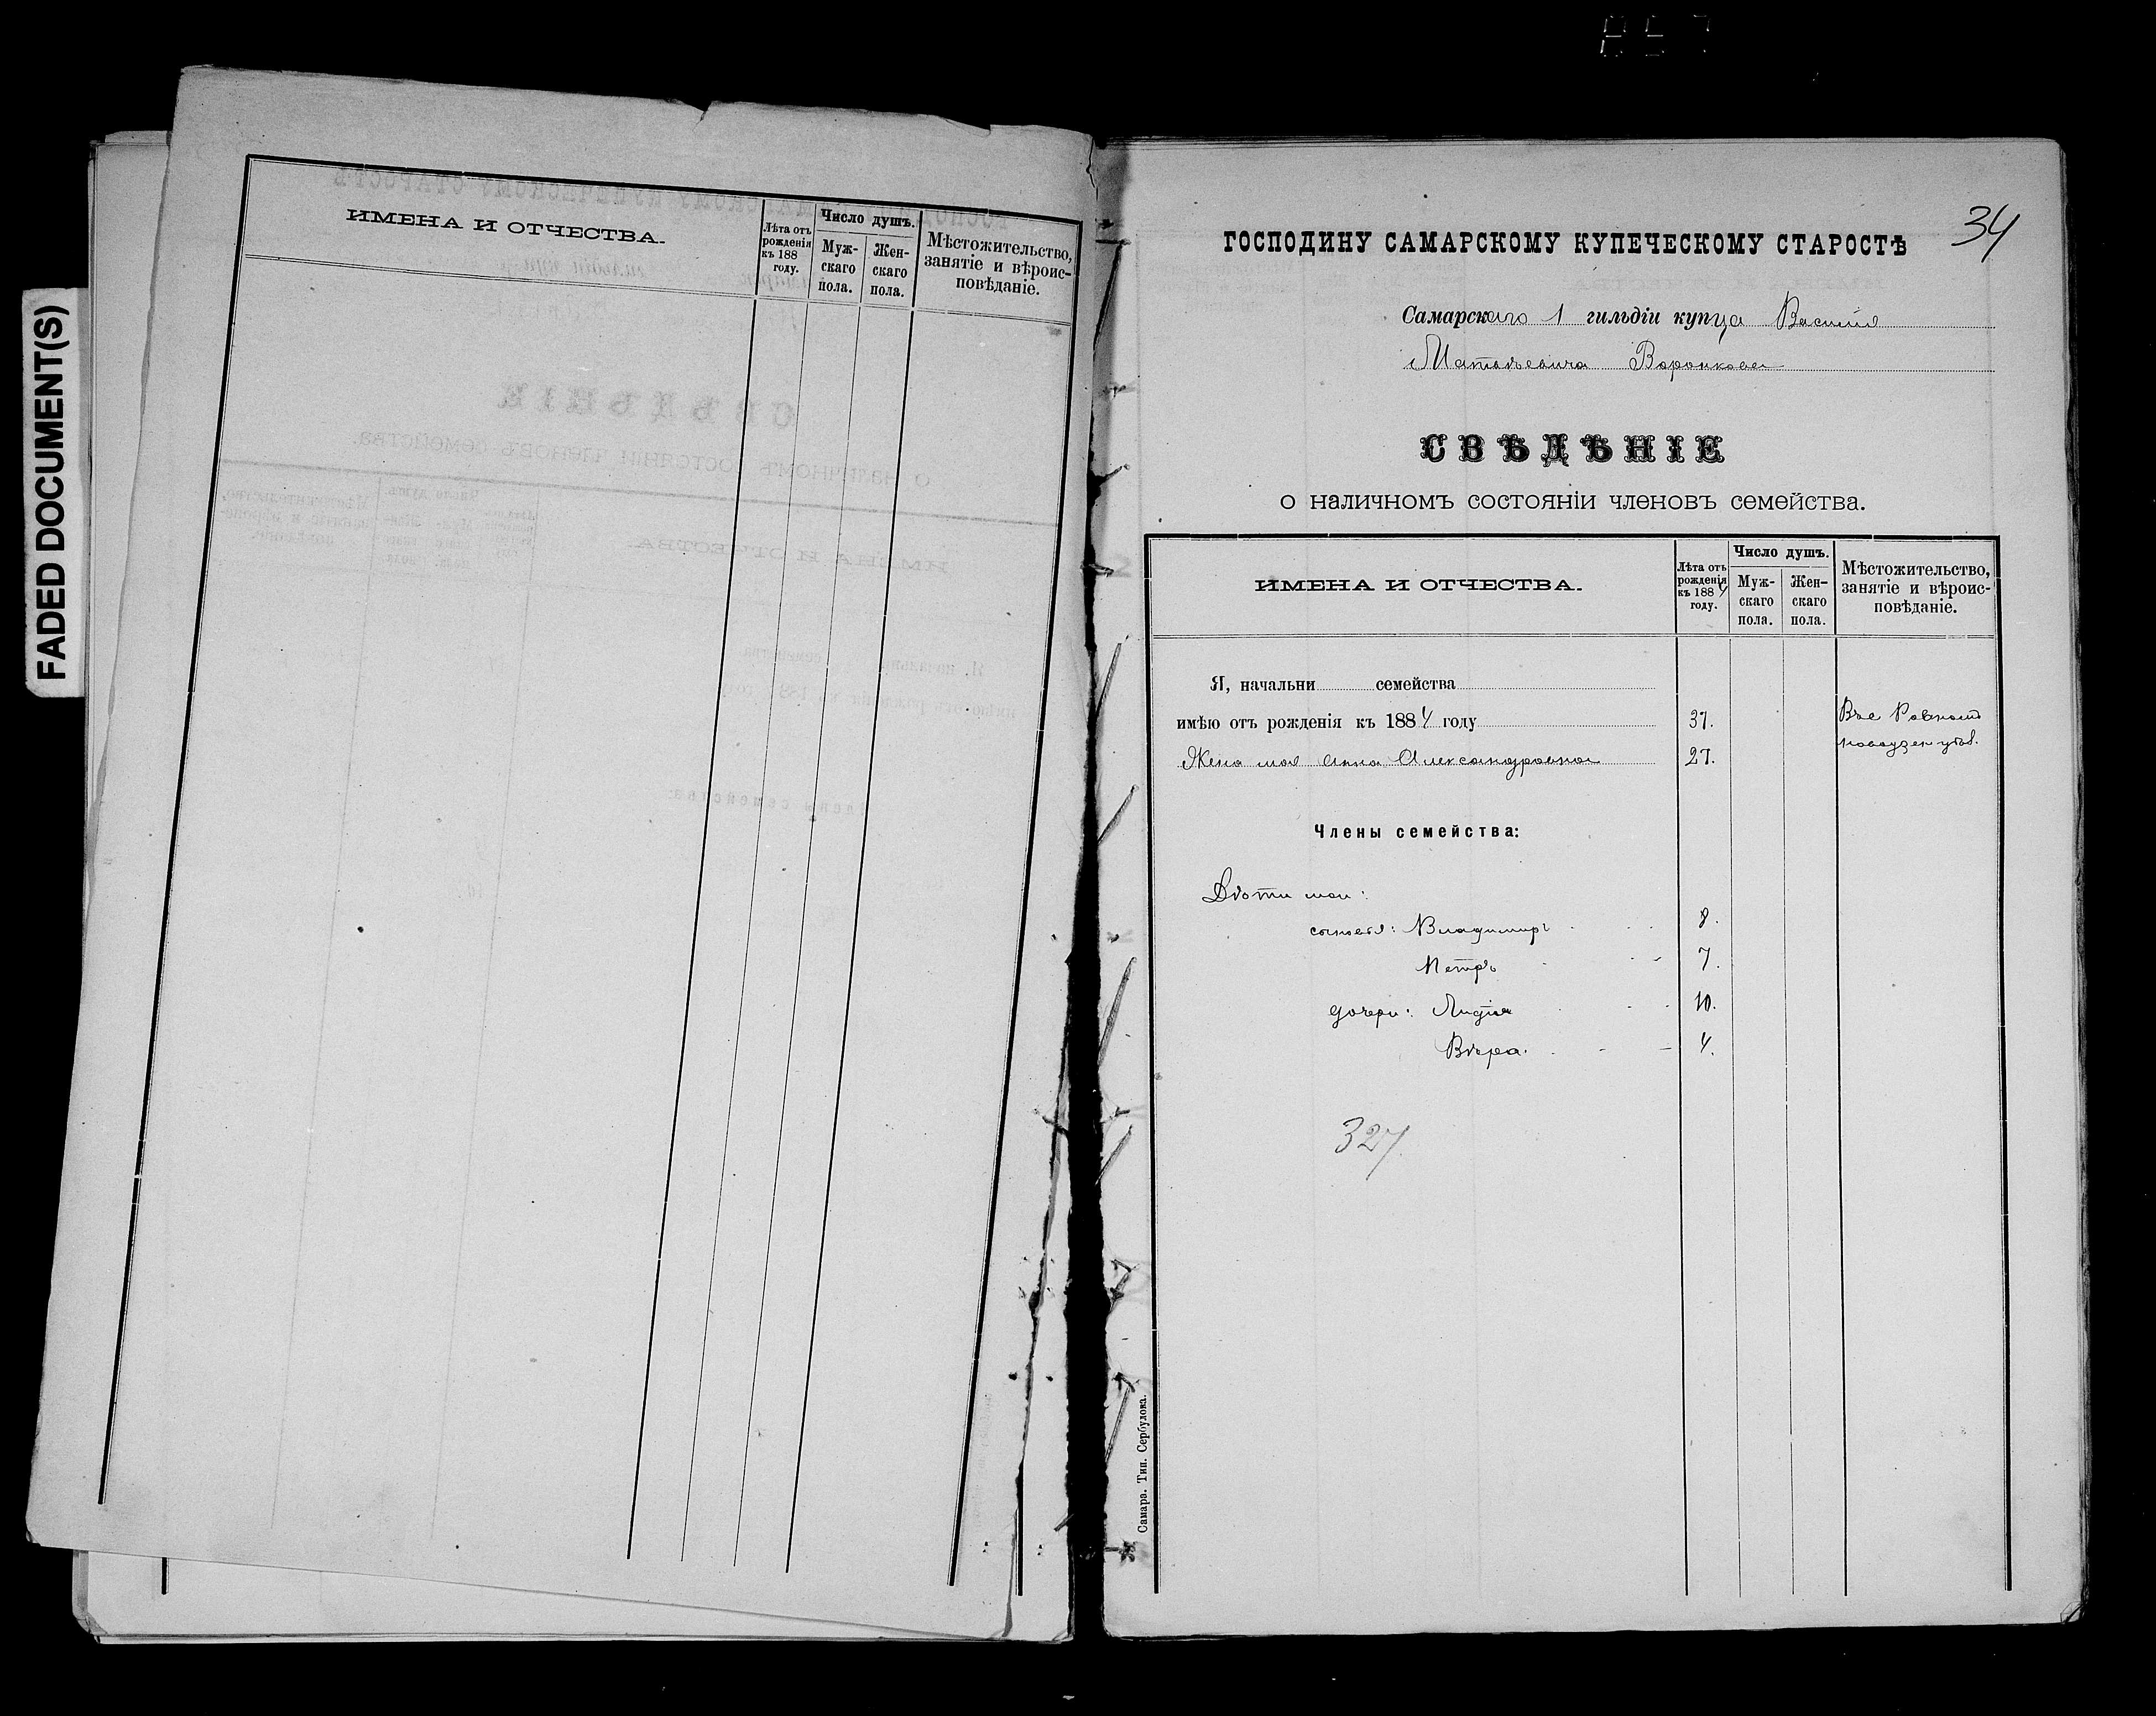 FADED DOCUMENT(S)
ИМЕНА И ОТЧЕСТВА.
Лѣта отъ рожденія къ 188 году.
Число душъ.
Муж-скаго пола.
Жен-скаго пола.
Мѣстожительство, занятіе и вѣроис-повѣданіе.
34
ГОСПОДИНУ САМАРСКОМУ КУПЕЧЕСКОМУ СТАРОСТѢ
Самарскаго 1 гильдіи купца Василія
Матвѣевича Воронкова
СВѢДѢНІЕ
о наличномъ состояніи членовъ семейства.
ИМЕНА И ОТЧЕСТВА.
Лѣта отъ рожденія къ 1884 году.
Число душъ.
Муж-скаго пола.
Жен-скаго пола.
Мѣстожительство, занятіе и вѣроис-повѣданіе.
Я, начальни семейства
имѣю отъ рожденія къ 1884 году 37.
Жена моя Анна Александровна 27.
Члены семейства:
Дѣти мои:
сыновья: Владимиръ 8.
Петръ 7.
дочери: Лидія 10.
Вѣра. 4.
327.
Самара. Тип. Сербулова.